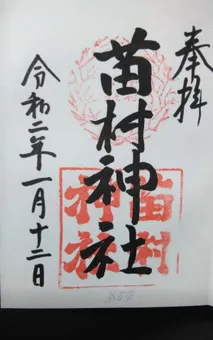 奉拝
苗村神社
令和二年一月十二日
苗村
神社